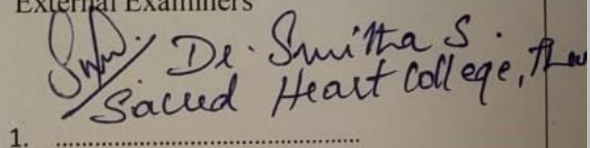 External Examiners
Dr. Smitha S.
Sacred Heart College,
1. ........................................................